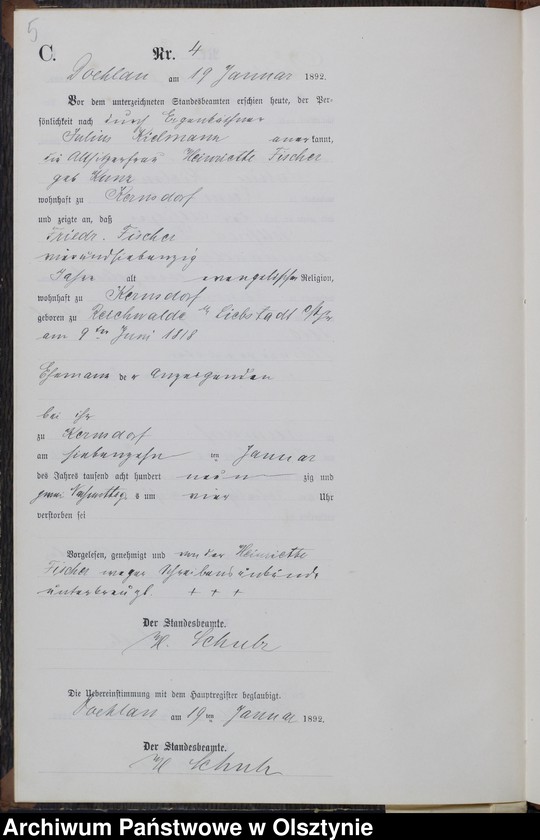 5
C.
Nr. 4
Doehlau am 19 Januar 1892.
Vor dem unterzeichneten Standesbeamten erschien heute, der Per-
sönlichkeit nach durch Eigenkäthner
Julius Kielmann anerkannt,
die Altsitzerfrau Henriette Fischer
geb Kunz
wohnhaft zu Kernsdorf
und zeigte an, daß
Friedr. Fischer
vierundsiebenzig
Jahre alt evangelischer Religion,
wohnhaft zu Kernsdorf
geboren zu Reichwalde Liebstadt
am 9ten Juni 1818
Ehemann der Anzeigenden
bei ihr
zu Kernsdorf
am siebenzehn ten Januar
des Jahres tausend acht hundert neun zig und
zwei Nachmittags um vier Uhr
verstorben sei
Vorgelesen, genehmigt und von der Henriette
Fischer wegen Schreibensunkunde
unterkreuzt. + + +
Der Standesbeamte.
Schulz
Die Uebereinstimmung mit dem Hauptregister beglaubigt.
Doehlau am 19ten Januar 1892.
Der Standesbeamte.
Schulz
Archiwum Państwowe w Olsztynie